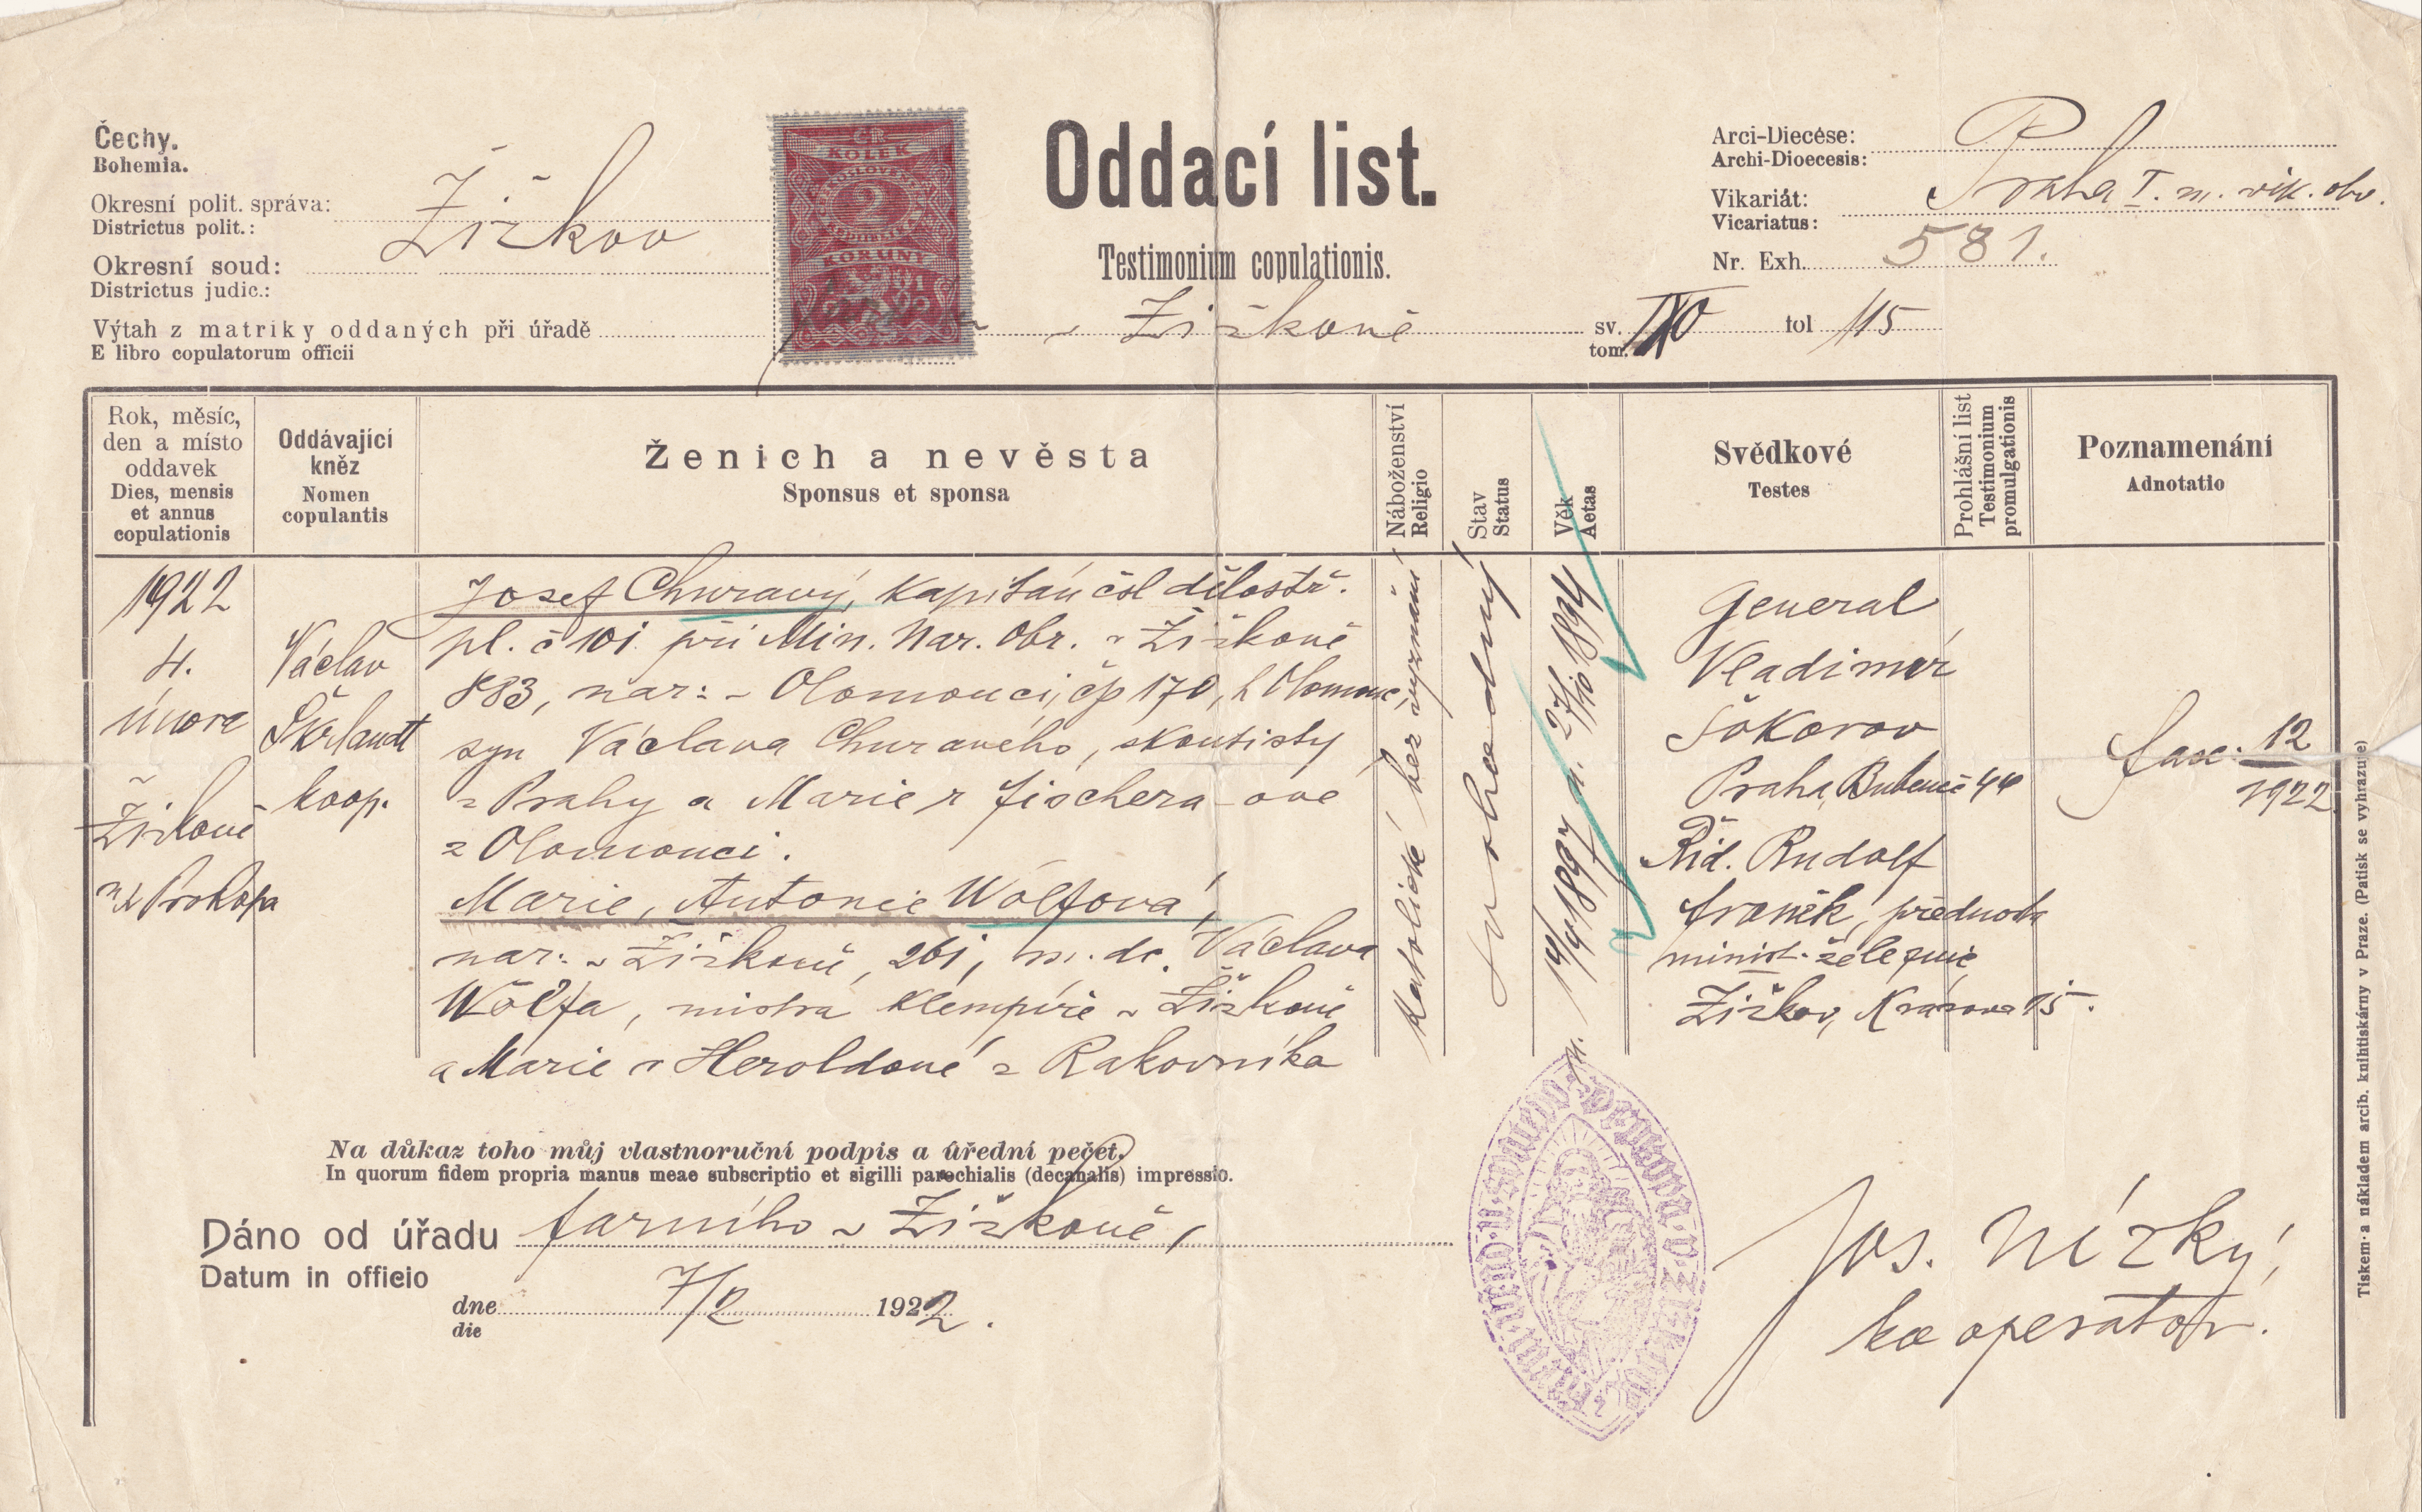 Čechy.
Bohemia.
Okresní polit. správa:
Districtus polit.:
Žižkov
Okresní soud:
Districtus judic.:
Výtah z matriky oddaných při úřadě
E libro copulatorum officii
v Žižkově
KOLEK
2
KORUNY
Oddací list.
Testimonium copulationis.
Arci-Diecése:
Archi-Dioecesis:
Praha I. m. vik. obv.
Vikariát:
Vicariatus:
Nr. Exh. 581.
sv.
tom.
fol 115
Rok, měsíc,
den a místo
oddavek
Dies, mensis
et annus
copulationis
Oddávající
kněz
Nomen
copulantis
Ženich a nevěsta
Sponsus et sponsa
Náboženství
Religio
Stav
Status
Věk
Aetas
Svědkové
Testes
Prohlášní list
Testimonium
promulgationis
Poznamenání
Adnotatio
1922
4.
února
Žižkově
u sv Prokopa
Václav
Škrlandt
koop.
Josef Churavý, kapitán čsl dělostř.
pl. č 101 při Min. Nar. Obr. v Žižkově
883, nar: v Olomouci, čp 170, h Olomouc,
syn Václava Churavého, skontisty
z Prahy a Marie r Fischera-ové
z Olomouci.
Marie, Antonie Wölfová,
nar: v Žižkově, 261, m. dc. Václava
Wölfa, mistra klempíře v Žižkově
a Marie r Heroldové z Rakovníka
Katolické bez vyznání
svobodný
n. 19/4 1897 n. 27/10 1894
General
Vladimir
Šokorov
Praha, Bubeneč 44
Řid. Rudolf
Franěk, přednosta
minist. železnic
Žižkov, Krásova 15.
fasc. 12
1922
Na důkaz toho můj vlastnoruční podpis a úřední pečeť.
In quorum fidem propria manus meae subscriptio et sigilli parochialis (decanalis) impressio.
Dáno od úřadu farního v Žižkově,
Datum in officio
dne 7/2 1922.
die
Jos. Nízký,
kooperator.
Tiskem a nákladem arcib. knihtiskárny v Praze. (Patisk se vyhrazuje)